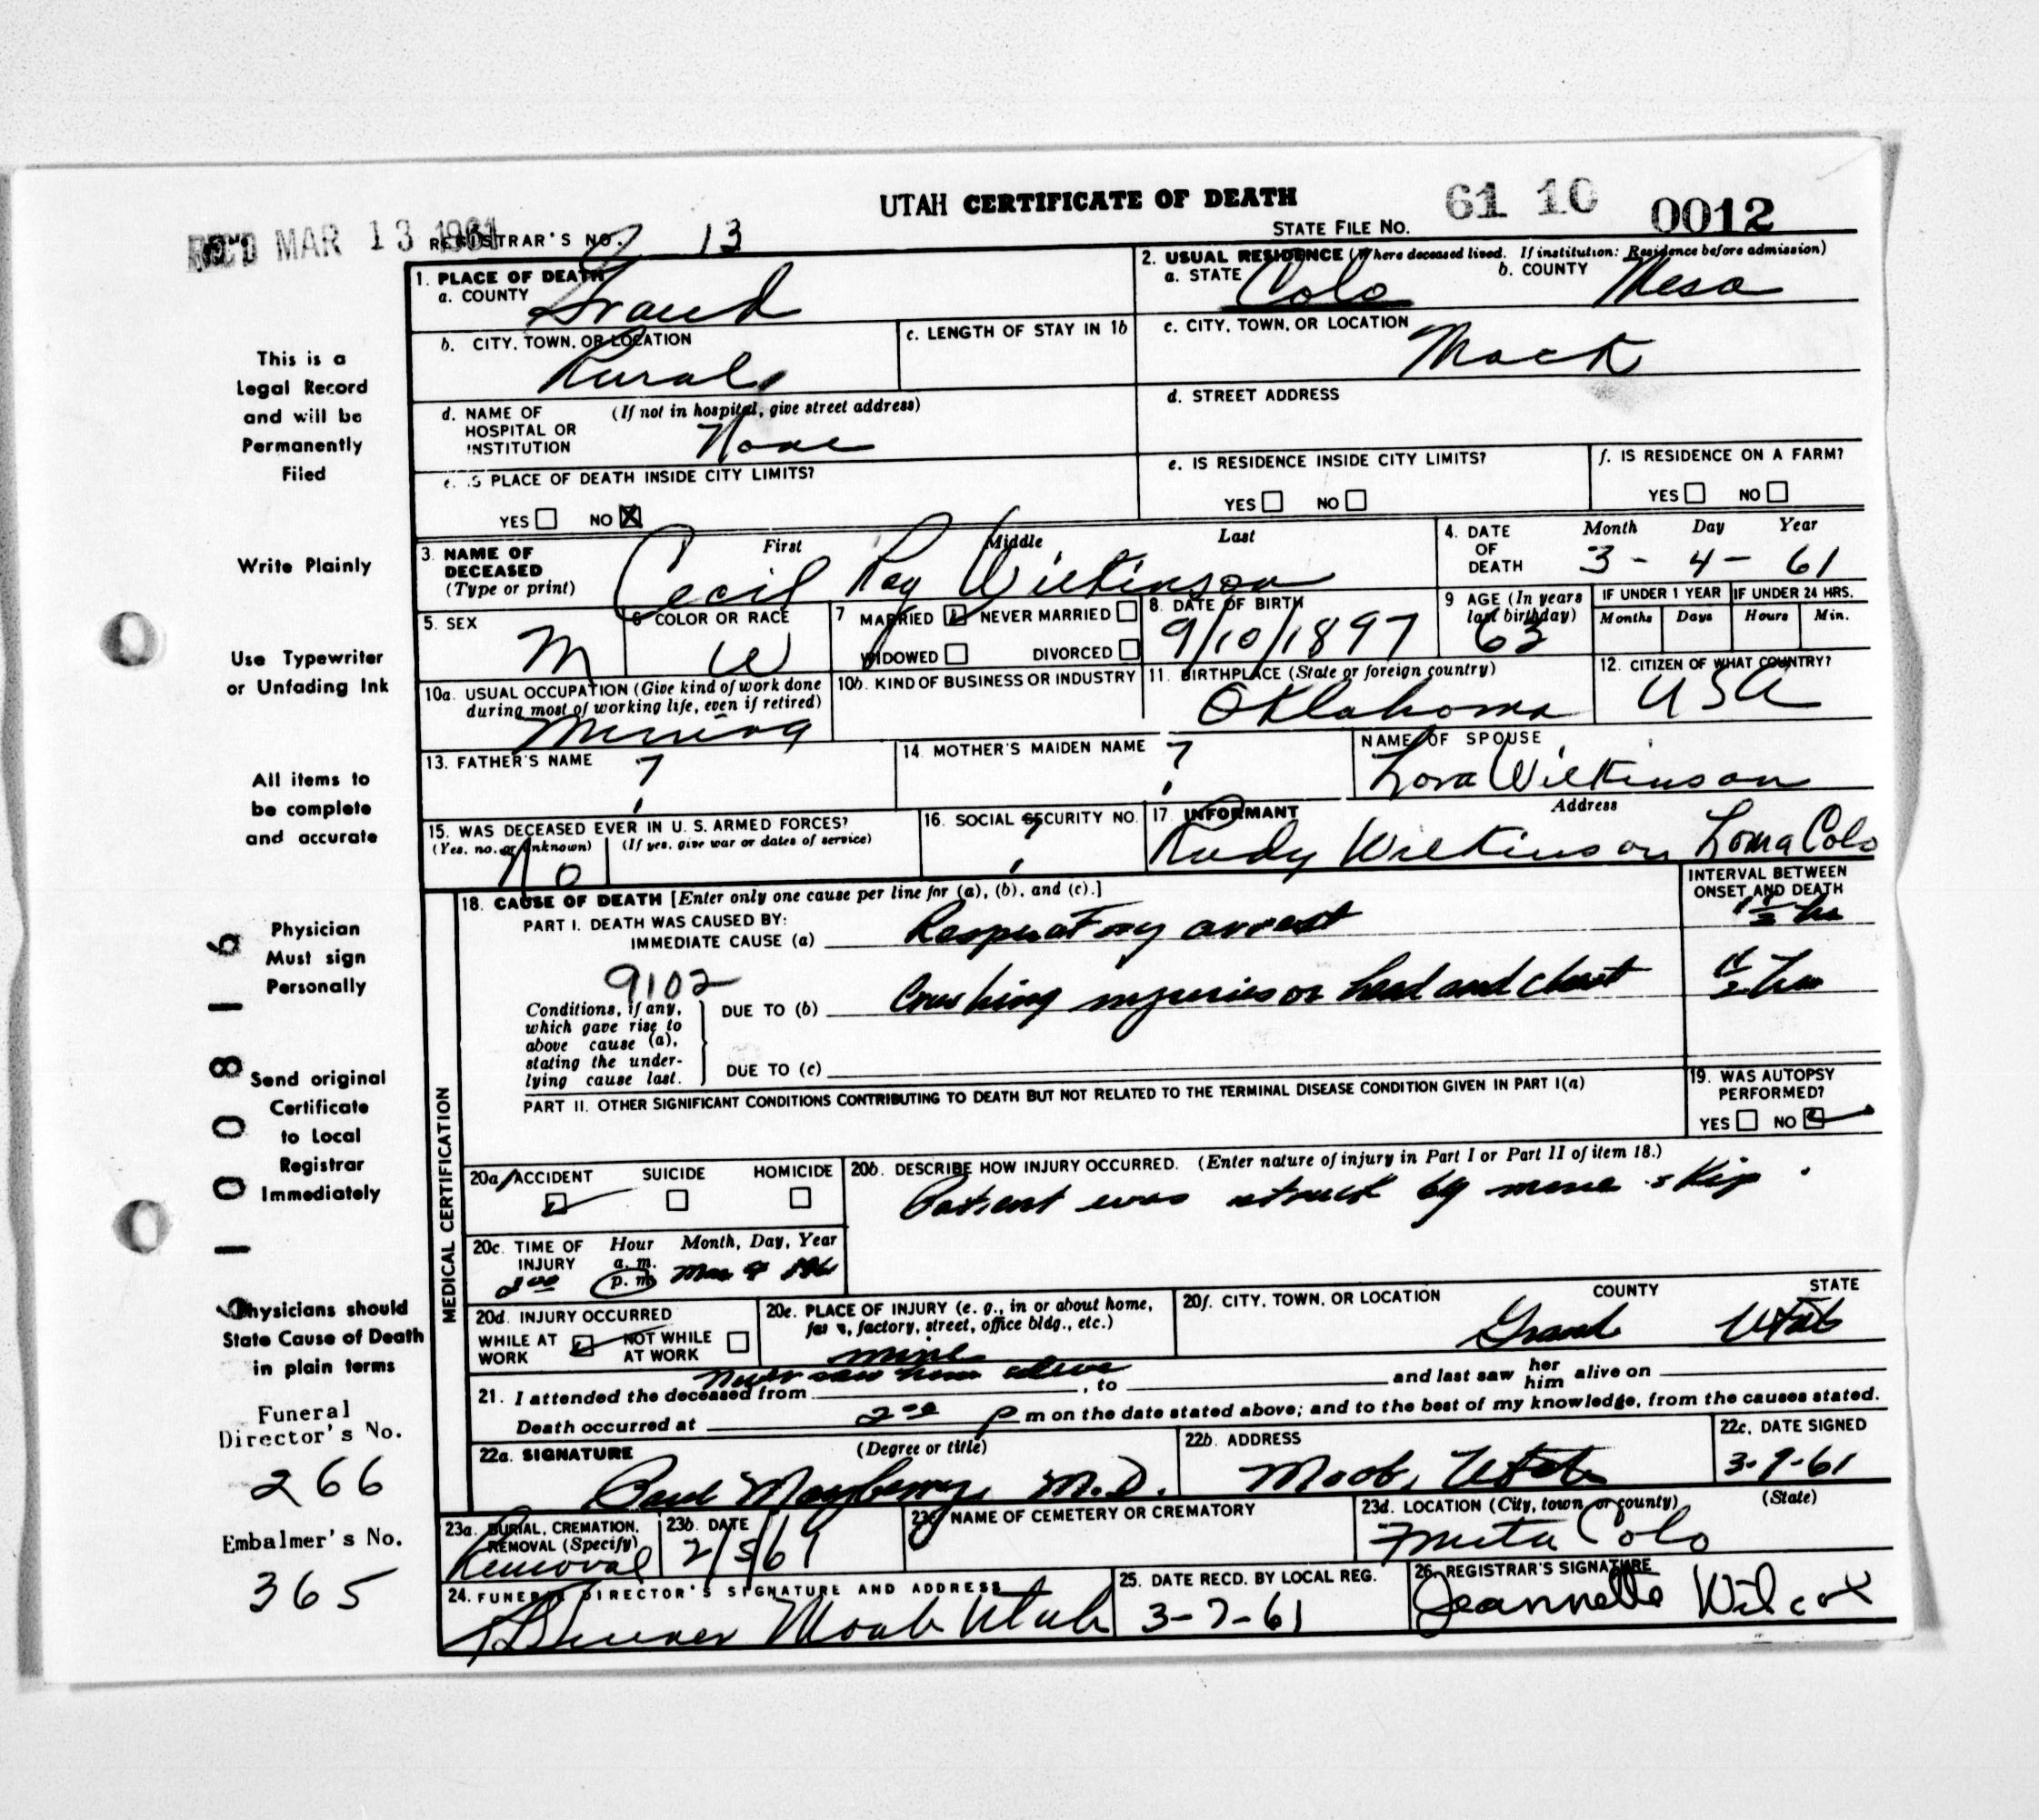 UTAH CERTIFICATE OF DEATH
STATE FILE NO. 61 10 0012
REC'D MAR 13 1961
REGISTRAR'S NO. 13
1. PLACE OF DEATH
a. COUNTY Grand
2. USUAL RESIDENCE (Where deceased lived. If institution: Residence before admission)
a. STATE Colo
b. COUNTY Mesa
b. CITY, TOWN, OR LOCATION Rural
c. LENGTH OF STAY IN 1b
c. CITY, TOWN, OR LOCATION Mack
d. NAME OF HOSPITAL OR INSTITUTION (If not in hospital, give street address) None
d. STREET ADDRESS
e. IS PLACE OF DEATH INSIDE CITY LIMITS?
YES NO X
e. IS RESIDENCE INSIDE CITY LIMITS?
YES NO
f. IS RESIDENCE ON A FARM?
YES NO
3. NAME OF DECEASED (Type or print)
First Middle Last
Cecil Ray Wilkinson
4. DATE OF DEATH
Month Day Year
3 - 4 - 61
5. SEX M
6 COLOR OR RACE W
7 MARRIED NEVER MARRIED
WIDOWED DIVORCED
8. DATE OF BIRTH 9/10/1897
9 AGE (In years last birthday) 63
IF UNDER 1 YEAR
Months Days
IF UNDER 24 HRS.
Hours Min.
10a. USUAL OCCUPATION (Give kind of work done during most of working life, even if retired) Mining
10b. KIND OF BUSINESS OR INDUSTRY
11. BIRTHPLACE (State or foreign country) Oklahoma
12. CITIZEN OF WHAT COUNTRY? USA
13. FATHER'S NAME ?
14. MOTHER'S MAIDEN NAME ?
NAME OF SPOUSE Lora Wilkinson
15. WAS DECEASED EVER IN U. S. ARMED FORCES?
(Yes, no, or unknown) (If yes, give war or dates of service)
No
16. SOCIAL SECURITY NO. ?
17. INFORMANT Address
Rudy Wilkinson Loma Colo
MEDICAL CERTIFICATION
18. CAUSE OF DEATH [Enter only one cause per line for (a), (b), and (c).]
INTERVAL BETWEEN ONSET AND DEATH
PART I. DEATH WAS CAUSED BY:
IMMEDIATE CAUSE (a) Respiratory arrest
9102
Conditions, if any, which gave rise to above cause (a), stating the underlying cause last.
DUE TO (b) Crushing injuries of head and chest
DUE TO (c)
PART II. OTHER SIGNIFICANT CONDITIONS CONTRIBUTING TO DEATH BUT NOT RELATED TO THE TERMINAL DISEASE CONDITION GIVEN IN PART I(a)
19. WAS AUTOPSY PERFORMED?
YES NO
20a. ACCIDENT SUICIDE HOMICIDE
20b. DESCRIBE HOW INJURY OCCURRED. (Enter nature of injury in Part I or Part II of item 18.)
Patient was struck by mine skip.
20c. TIME OF INJURY
Hour Month, Day, Year
a. m.
2 00 p. m. Mar 4
20d. INJURY OCCURRED
WHILE AT WORK NOT WHILE AT WORK
20e. PLACE OF INJURY (e. g., in or about home, farm, factory, street, office bldg., etc.)
mine
20f. CITY, TOWN, OR LOCATION COUNTY STATE
Grand Utah
21. I attended the deceased from never saw him alive, to and last saw her him alive on
Death occurred at 2 00 p m on the date stated above; and to the best of my knowledge, from the causes stated.
22a. SIGNATURE (Degree or title)
Paul Mayberry M.D.
22b. ADDRESS
Moab, Utah
22c. DATE SIGNED
3-7-61
23a. BURIAL, CREMATION, REMOVAL (Specify)
Removal
23b. DATE
2/5/61
23c. NAME OF CEMETERY OR CREMATORY
23d. LOCATION (City, town, or county) (State)
Fruita Colo
24. FUNERAL DIRECTOR'S SIGNATURE AND ADDRESS
Moab Utah
25. DATE RECD. BY LOCAL REG.
3-7-61
26. REGISTRAR'S SIGNATURE
Jeannette Wilcox
This is a
Legal Record
and will be
Permanently
Filed
Write Plainly
Use Typewriter
or Unfading Ink
All items to
be complete
and accurate
Physician
Must sign
Personally
Send original
Certificate
to Local
Registrar
Immediately
Physicians should
State Cause of Death
in plain terms
Funeral
Director's No.
266
Embalmer's No.
365